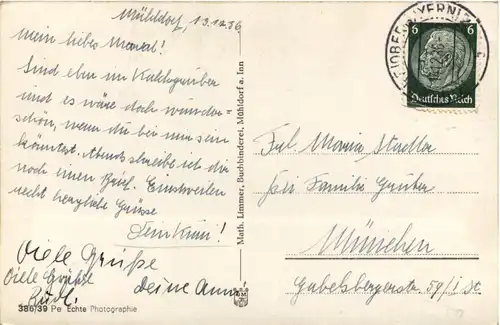 Mühldorf, 13.12.36
Mein liebes Mararl!
Sind eben im
und es wäre doch wunder-
schön, wenn du bei mir sein
könntest. Abends schreibe ich dir
noch einen Brief. Einstweilen
recht herzliche Grüsse
Viele Grüße
deine Anna
Viele Grüße
Rudi.
386/39 Pe Echte Photographie
Math. Limmer, Buchbinderei, Mühldorf a. Inn
6 6
Deutsches Reich
Frl. Maria Stadler
bei Familie Gruber
München
Gabelsbergerstr. 59/I